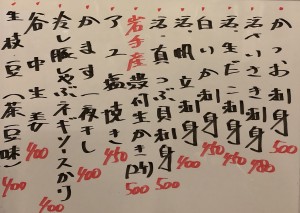 かつおさ刺身 500
活〆さば刺身 780
活生だこ刺身 450
白いか刺身 450
活帆立刺身 400
活真つぶ貝刺身 500
岩手産殻付生かき(1ケ) 500
アユ塩焼き 450
かます一夜干し 400
冷し豚しゃぶネギソースかけ 400
谷中生姜 400
生枝豆(茶豆味) 400